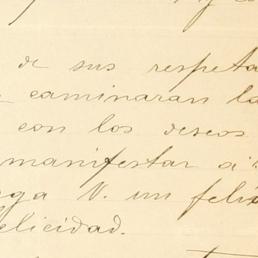 de sus respeta
caminaran la
con los deseos
manifestar á
ga V. un feliz
felicidad.